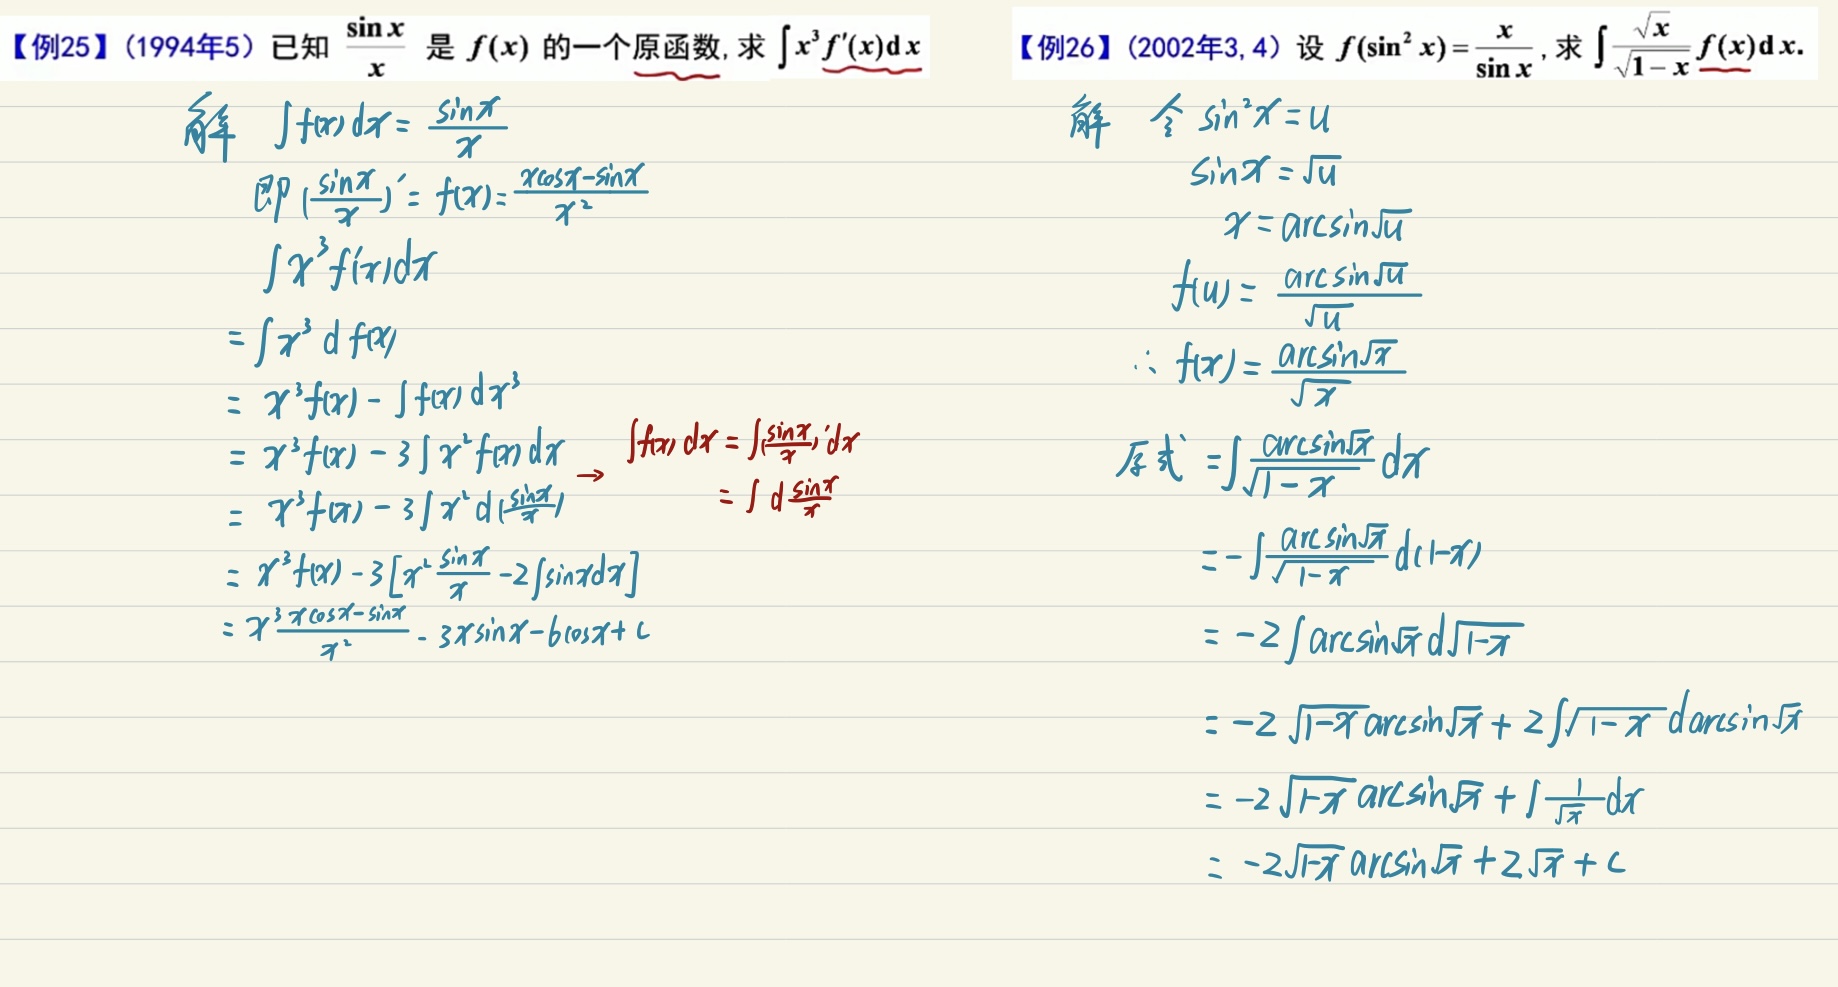 【例25】(1994年5) 已知 $\frac{\sin x}{x}$ 是 $f(x)$ 的一个原函数, 求 $\int x^3 f'(x)\mathrm{d}x$
解 $\int f(x)dx = \frac{\sin x}{x}$
即 $(\frac{\sin x}{x})' = f(x) = \frac{x\cos x - \sin x}{x^2}$
$\int x^3 f'(x)dx$
$= \int x^3 d f(x)$
$= x^3 f(x) - \int f(x) dx^3$
$= x^3 f(x) - 3\int x^2 f(x) dx$
$= x^3 f(x) - 3\int x^2 d(\frac{\sin x}{x})$
→ $\int f(x) dx = \int (\frac{\sin x}{x})' dx$
$= \int d \frac{\sin x}{x}$
$= x^3 f(x) - 3[x^2 \frac{\sin x}{x} - 2\int \sin x dx]$
$= x^3 \frac{x\cos x - \sin x}{x^2} - 3x\sin x - 6\cos x + c$
【例26】(2002年3, 4) 设 $f(\sin^2 x) = \frac{x}{\sin x}$, 求 $\int \frac{\sqrt{x}}{\sqrt{1-x}} f(x)\mathrm{d}x.$
解 令 $\sin^2 x = u$
$\sin x = \sqrt{u}$
$x = \arcsin\sqrt{u}$
$f(u) = \frac{\arcsin\sqrt{u}}{\sqrt{u}}$
∴ $f(x) = \frac{\arcsin\sqrt{x}}{\sqrt{x}}$
原式 $= \int \frac{\arcsin\sqrt{x}}{\sqrt{1-x}} dx$
$= -\int \frac{\arcsin\sqrt{x}}{\sqrt{1-x}} d(1-x)$
$= -2\int \arcsin\sqrt{x} d\sqrt{1-x}$
$= -2\sqrt{1-x}\arcsin\sqrt{x} + 2\int \sqrt{1-x} d\arcsin\sqrt{x}$
$= -2\sqrt{1-x}\arcsin\sqrt{x} + \int \frac{1}{\sqrt{x}} dx$
$= -2\sqrt{1-x}\arcsin\sqrt{x} + 2\sqrt{x} + c$